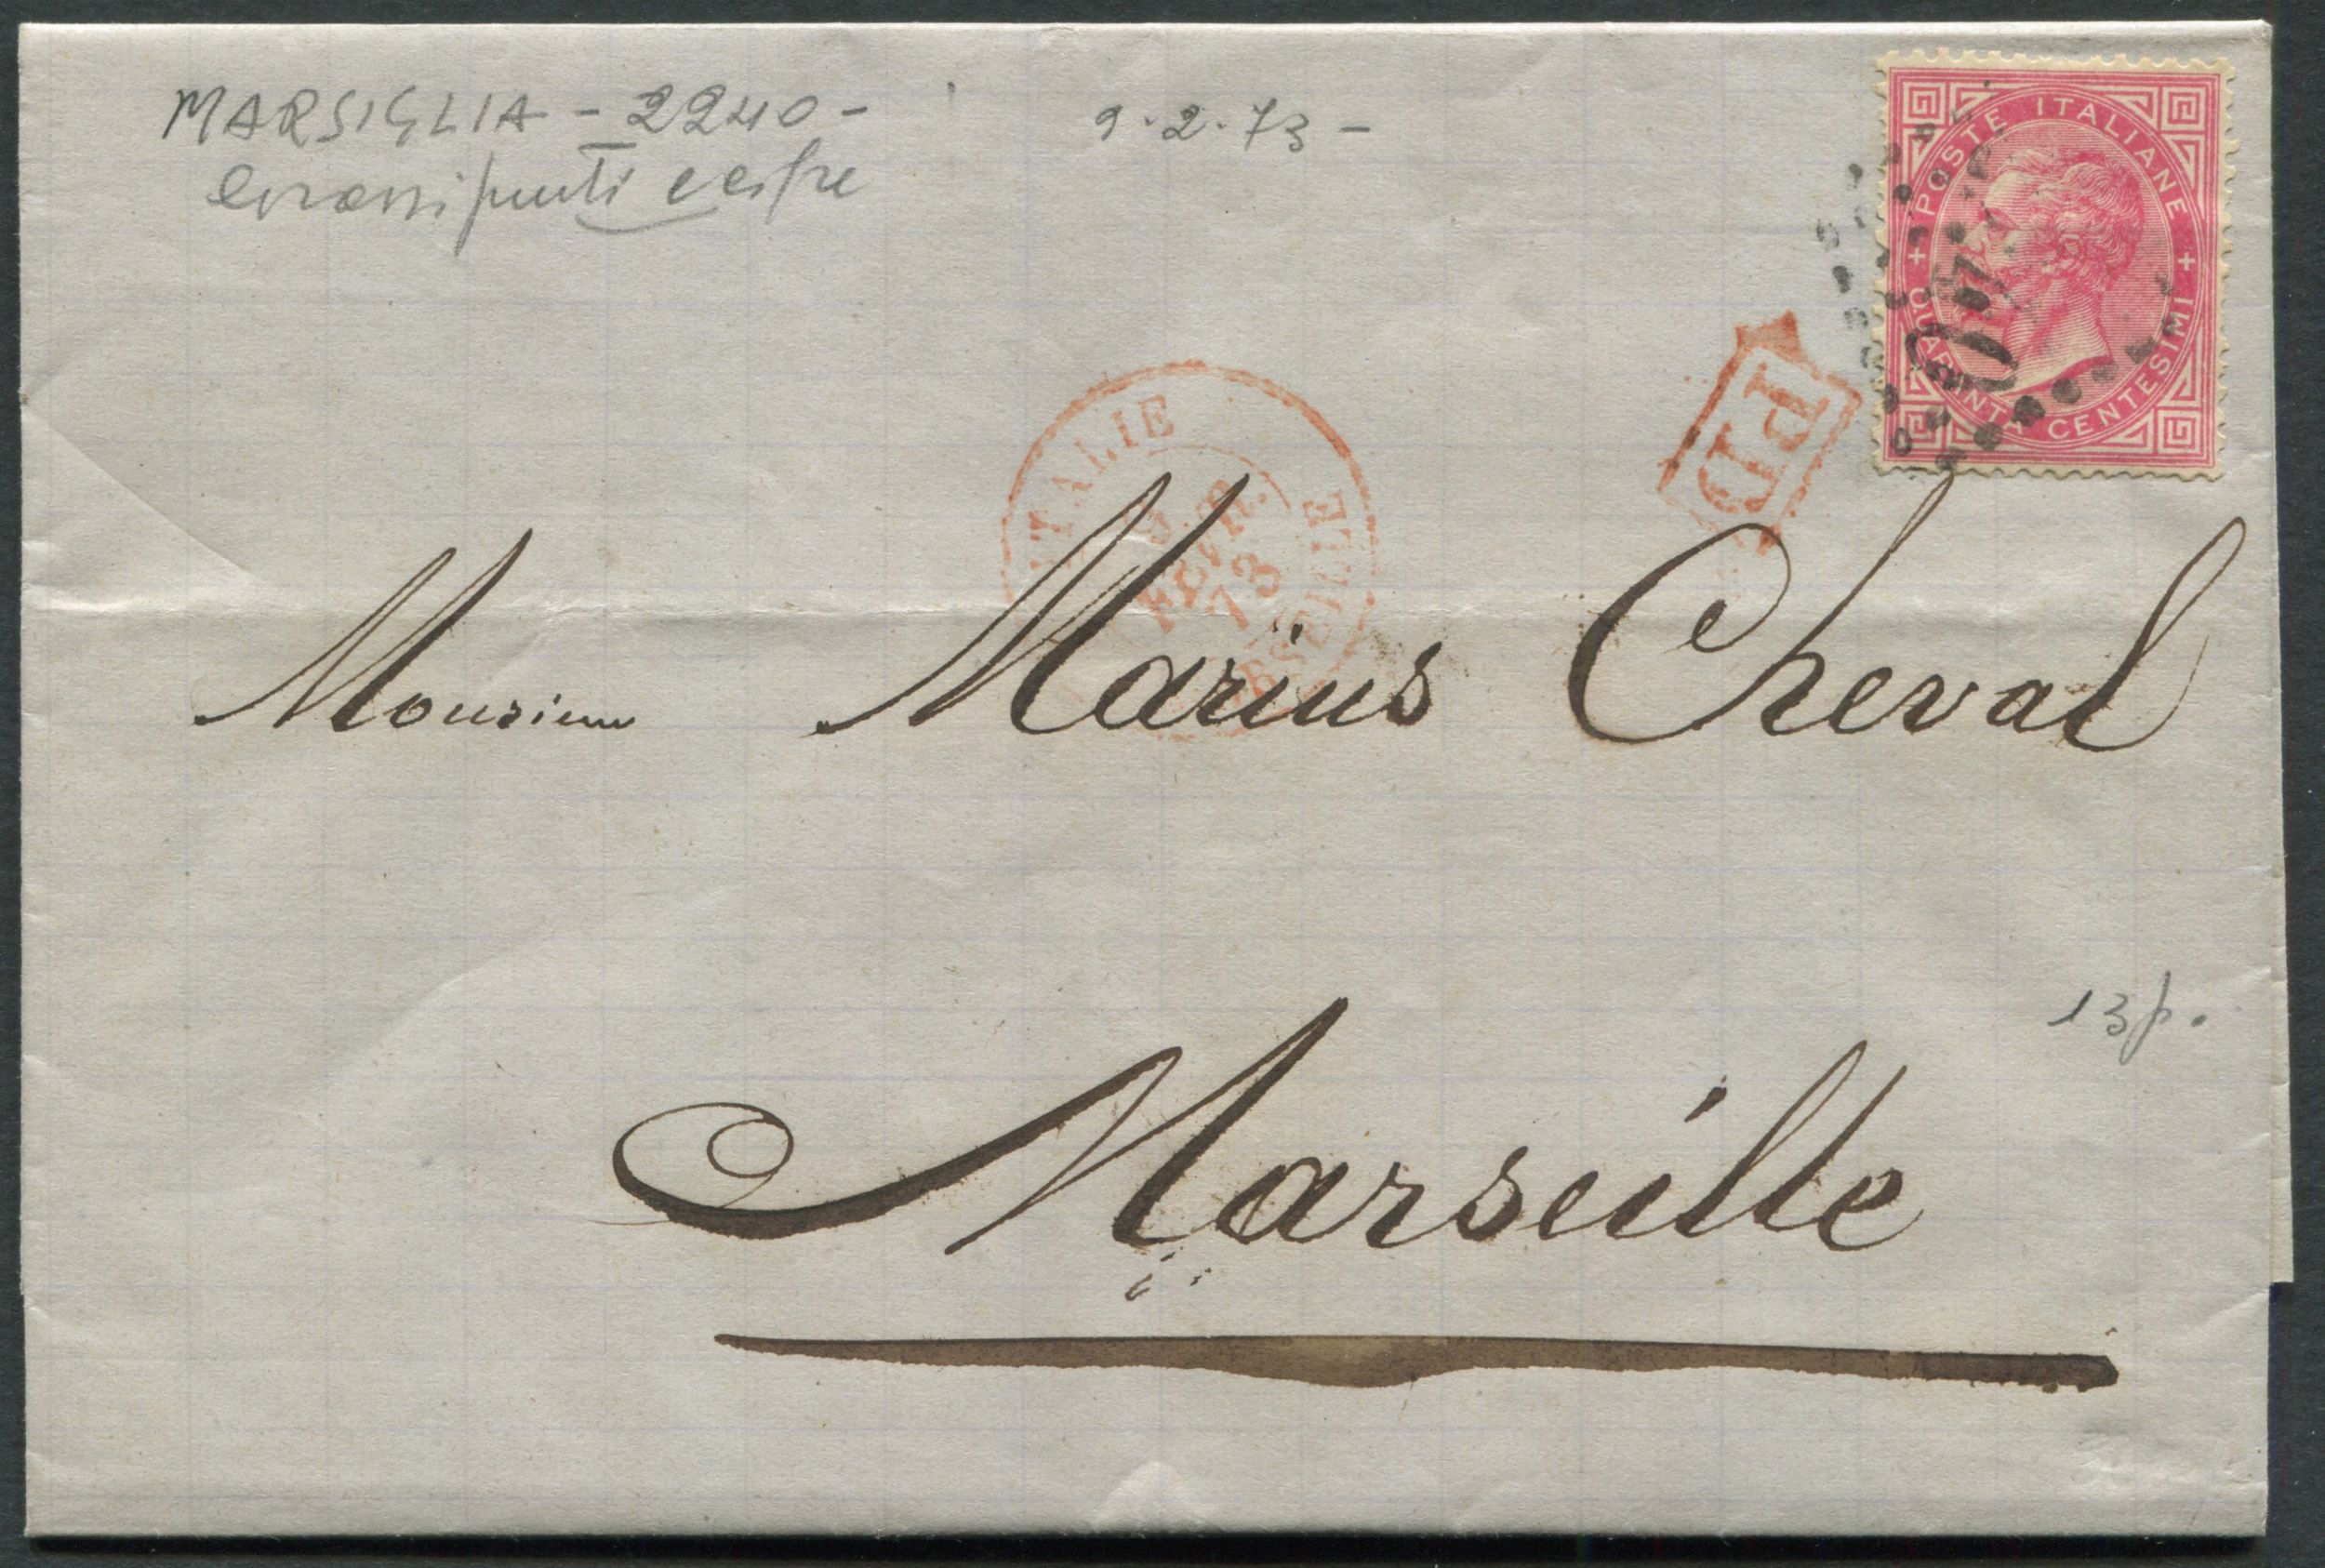 MARSIGLIA - 2240 -
9.2.73 -
punti e cifre
POSTE ITALIANE
QUARANTA CENTESIMI
40
PD
ITALIE
9
FEVR.
73
MARSEILLE
Monsieur Marius Cheval
13 p.
Marseille